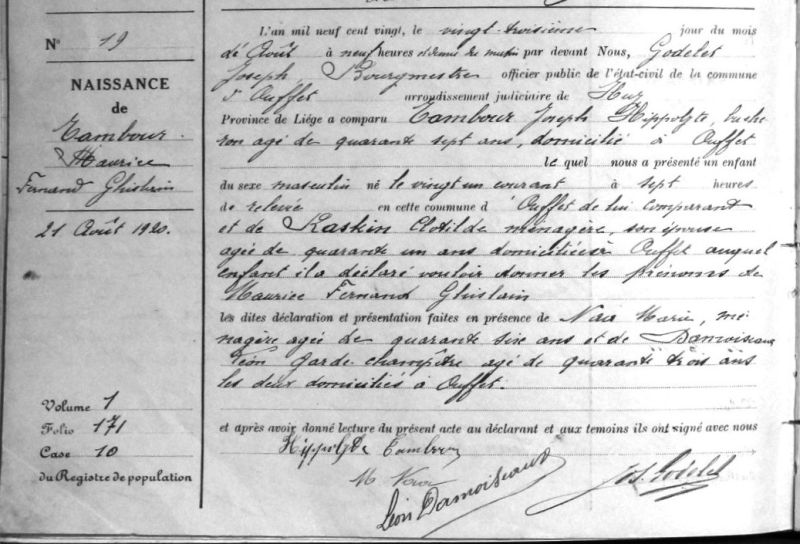 N° 19
NAISSANCE
de
Tambour
Maurice
Fernand Ghislain
21 Août 1920.
Volume 1
Folio 171
Case 10
du Registre de population
L'an mil neuf cent vingt, le vingt-troisième jour du mois
de Août à neuf heures et demie du matin par devant Nous, Godelet
Joseph, Bourgmestre officier public de l'état-civil de la commune
d'Ouffet arrondissement judiciaire de Huy
Province de Liège a comparu Tambour Joseph Hippolyte, buche
ron agé de quarante sept ans, domicilié à Ouffet
le quel nous a présenté un enfant
du sexe masculin né le vingt un courant à sept heures
de relevée en cette commune d'Ouffet de lui comparant
et de Raskin Clotilde ménagère, son épouse
agée de quarante un ans domiciliée à Ouffet auquel
enfant il a déclaré vouloir donner les prénoms de
Maurice Fernand Ghislain
les dites déclaration et présentation faites en présence de Marie, mé
nagère agée de quarante six ans et de Damoiseaux
Léon garde-champêtre agé de quarante trois ans
les deux domiciliés à Ouffet.
et après avoir donné lecture du présent acte au déclarant et aux temoins ils ont signé avec nous
Hippolyte Tambour
M
Léon Damoiseaux
Jos. Godelet